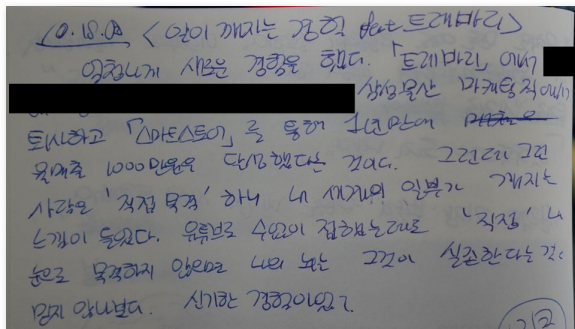 <알이 깨지는 경험 feat 트레바리>
엄청나게 새로운 경험을 했다. 「트레바리」에서
삼성물산 마케팅직에서
퇴사하고 「스마트스토어」를 통해 1년만에
월매출 1000만원을 달성했다는 것이다. 그런데 그런
사람을 '직접 목격'하니 내 세계의 일부가 깨지는
느낌이 들었다. 유튜브로 수없이 접했는데도 '직접' 내
눈으로 목격하지 않으면 나의 뇌는 그것이 실존한다는 걸
믿지 않나보다. 신기한 경험이었다.